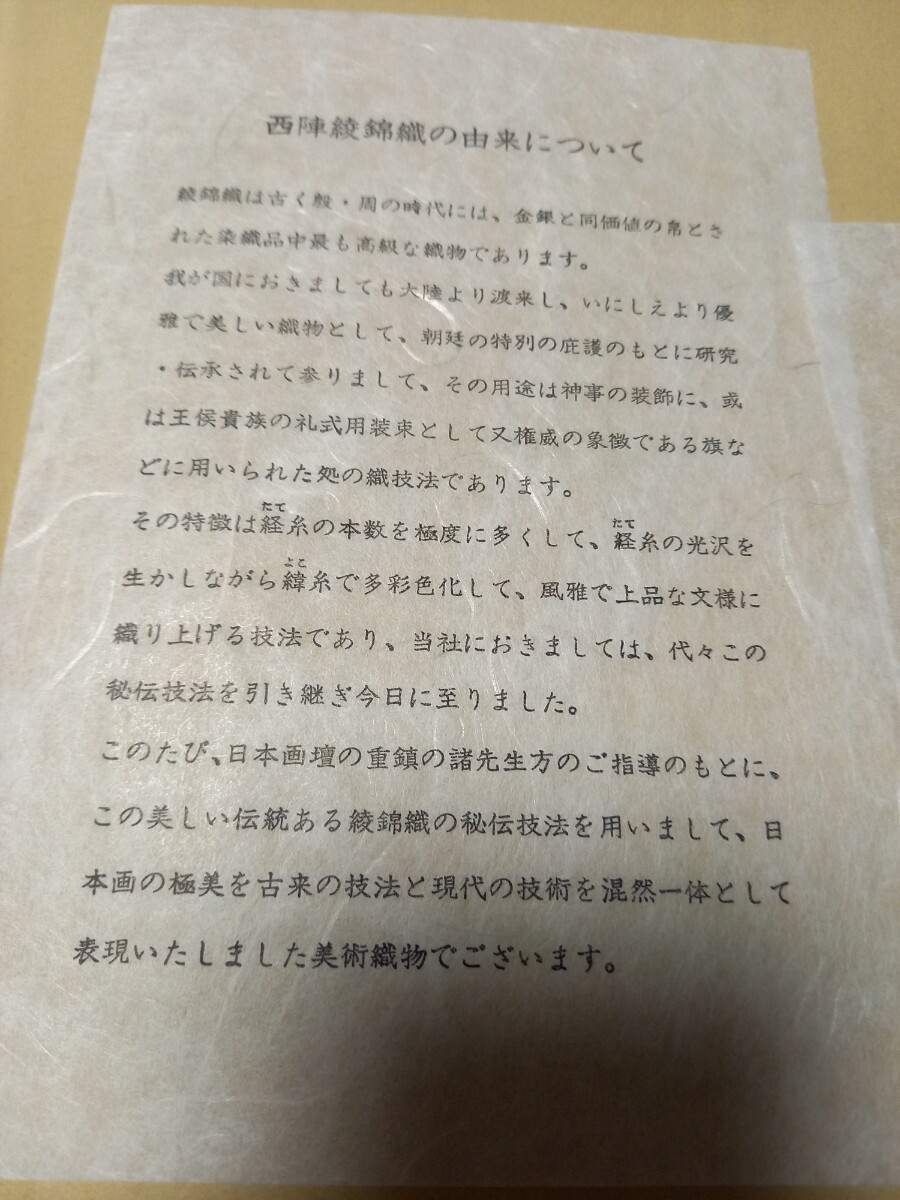 西陣綾錦織の由来について
綾錦織は古く殷・周の時代には、金銀と同価値の帛とさ
れた染織品中最も高級な織物であります。
我が国におきましても大陸より渡来し、いにしえより優
雅で美しい織物として、朝廷の特別の庇護のもとに研究
・伝承されて参りまして、その用途は神事の装飾に、或
は王侯貴族の礼式用装束として又権威の象徴である旗な
どに用いられた処の織技法であります。
たて たて
その特徴は経糸の本数を極度に多くして、経糸の光沢を
よこ
生かしながら緯糸で多彩色化して、風雅で上品な文様に
織り上げる技法であり、当社におきましては、代々この
秘伝技法を引き継ぎ今日に至りました。
このたび、日本画壇の重鎮の諸先生方のご指導のもとに、
この美しい伝統ある綾錦織の秘伝技法を用いまして、日
本画の極美を古来の技法と現代の技術を混然一体として
表現いたしました美術織物でございます。